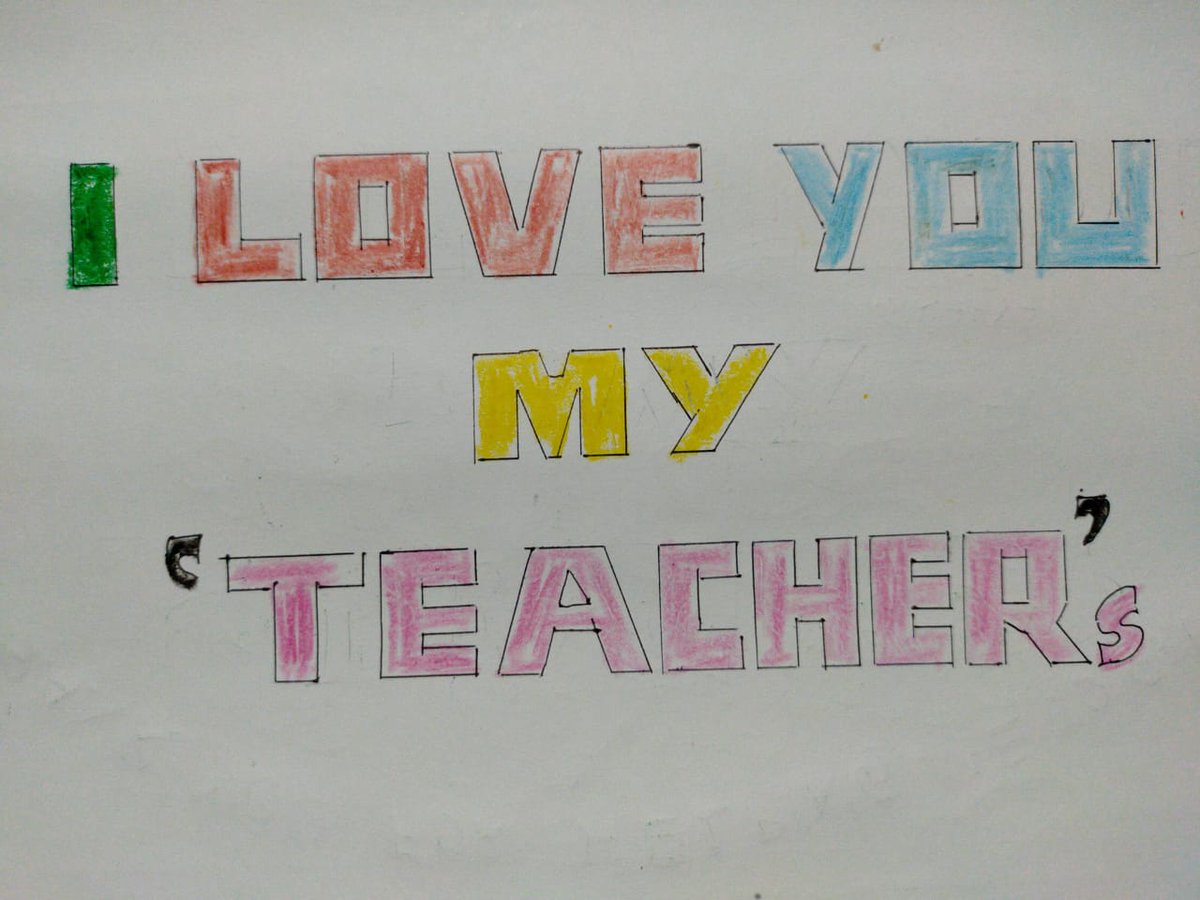 I LOVE YOU
MY
‘TEACHER’s